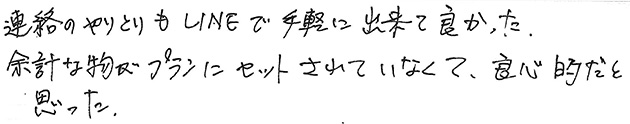 連絡のやりとりもLINEで手軽に出来て良かった.
余計な物がプランにセットされていなくて、良心的だと
思った.